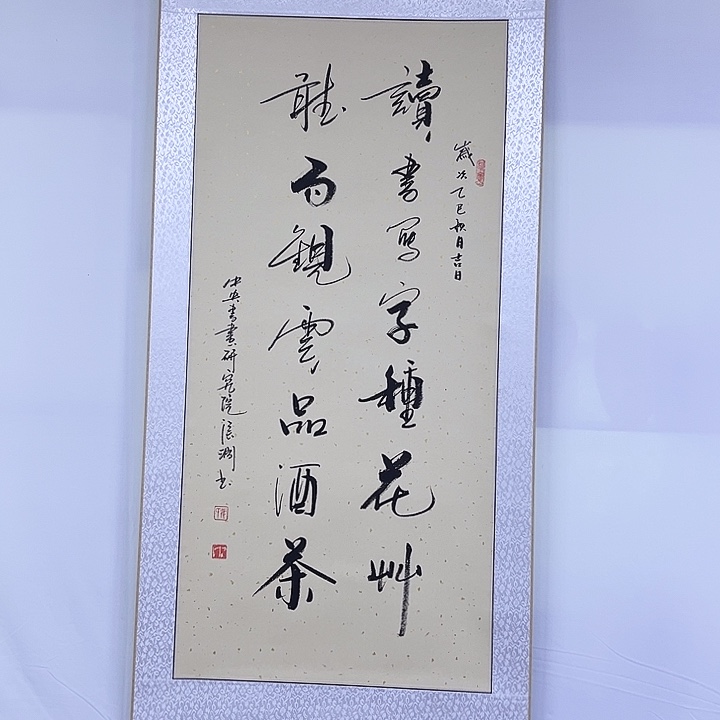 歲次乙巳秋月吉日
讀書写字種花艸
聽雨觀雲品酒茶
中央书画研究院